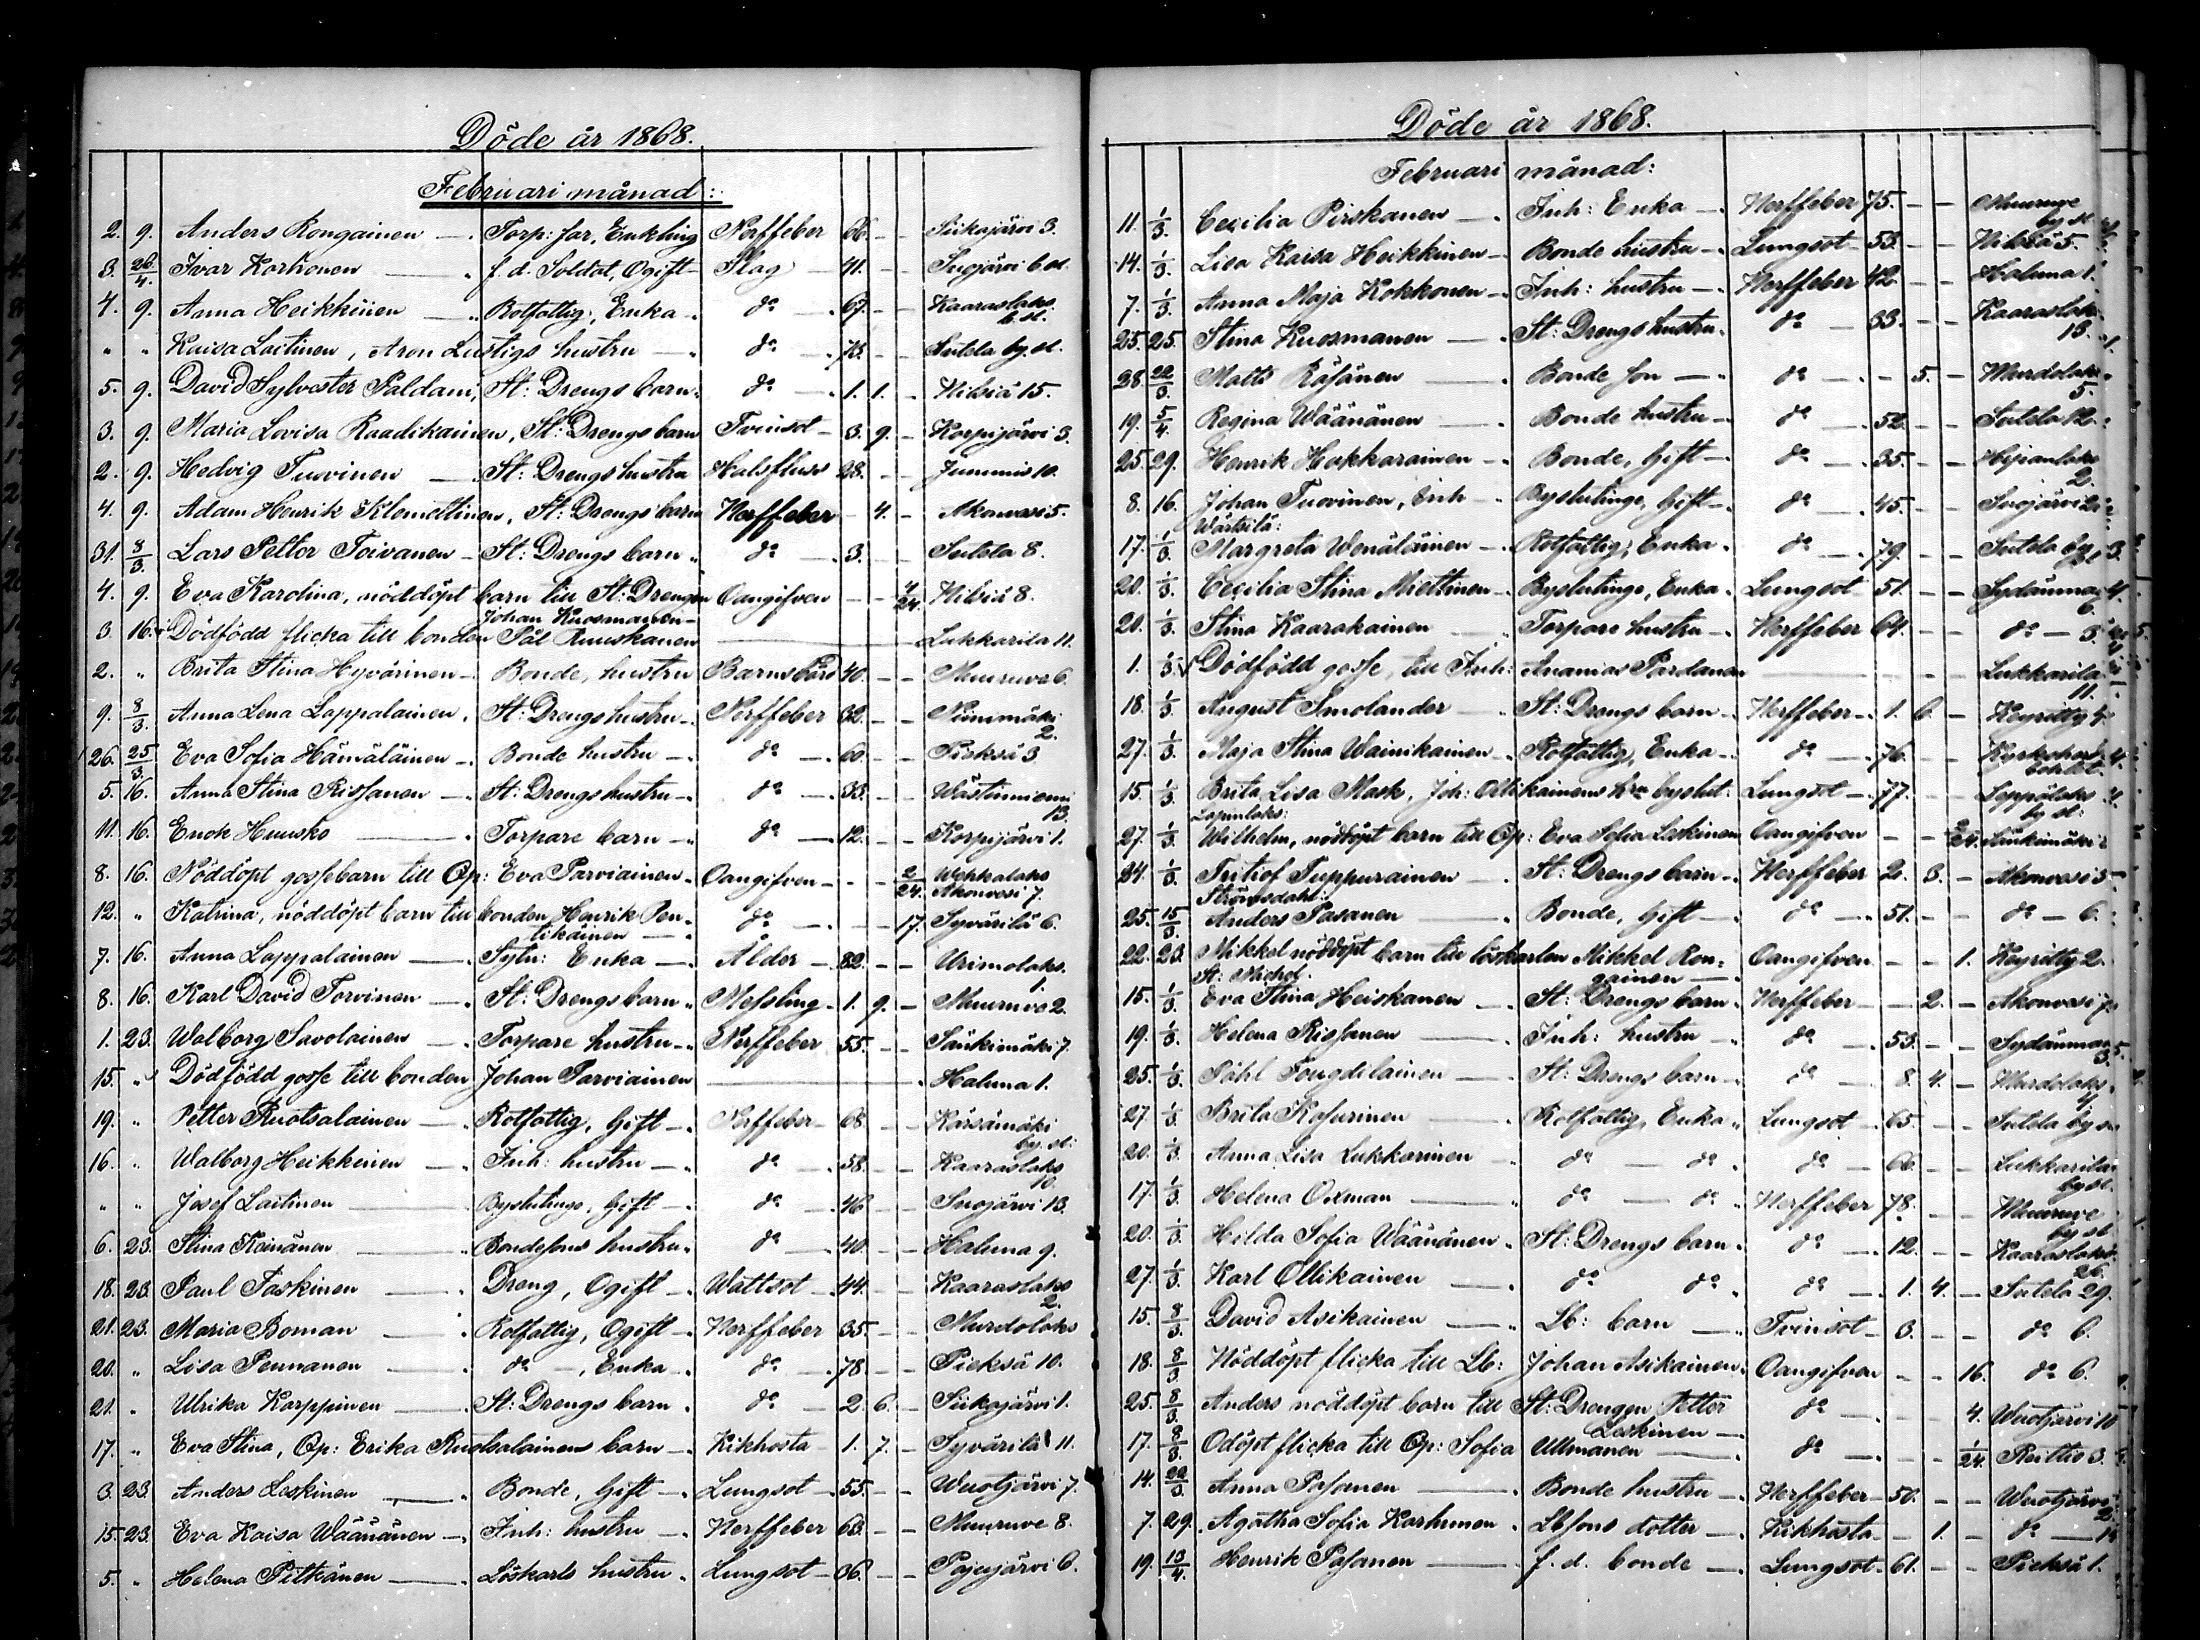 Döde år 1868.
Februari månad:
2. 9. Anders Rongainen — Torp: far, Enkling Nerffeber 66. - - Siikajärvi 3.
3. 26/4. Ivar Korhonen — f. d. Soldat, Ogift Slag — 41. - - Suojärvi 6.
4. 9. Anna Heikkinen — Rotfattig, Enka do — 67. - - Kaaraslaks
" " Kaisa Laitinen, Aron Lustigs hustru — do — 75. - - Sutela by.
5. 9. David Sylvester Paldani, St: Drengs barn do — 1. 1. - Nilsiä 15.
3. 9. Maria Lovisa Raadikainen, St: Drengs barn Tvinsot — 3. 9. - Korpijärvi 3.
2. 9. Hedvig Tuovinen — St: Drengs hustru Halsfluss 28. - - Juminis 10.
4. 9. Adam Henrik Klemettinen, St: Drengs barn Nerffeber - 4. - Akonvesi 5.
31. 8/3. Lars Petter Toivanen — St: Drengs barn do — 3. - - Sutela 8.
4. 9. Eva Karolina, nöddöpt barn till St: Drengen Oangifven - - 4/24. Nilsiä 8.
Johan Kuosmanen —
3. 16. Dödfödd flicka till bonden Pål Ruuskanen — Lukkarila 11.
2. " Brita Stina Hyvärinen — Bonde, hustru Barnsbörd 40. - - Muuruve 6.
9. 8/3. Anna Lena Lappalainen. St: Drengs hustru Nerffeber 32. - - Niinimäki
2.
26. 25/3. Eva Sofia Hämäläinen — Bonde hustru — do — 60. - - Pieksä 3
5. 16. Anna Stina Rissanen — St: Drengs hustru — do — 33. - - Wästinniemi
13.
11. 16. Enok Huusko — Torpare barn — do — 12. - - Korpijärvi 1.
8. 16. Nöddöpt gossebarn till Qp: Eva Parviainen. Oangifven - - 2/24. Wehkalaks
Akonvesi 7.
12. " Katrina, nöddöpt barn till bonden Henrik Pen- do — - - 17. Syvärilä 6.
tikäinen —
7. 16. Anna Lappalainen — Sytn: Enka — Ålder — 82. - - Urimolaks.
1.
8. 16. Karl David Torvinen — St: Drengs barn Messling 1. 9. - Muuruve 2.
1. 23. Walborg Savolainen — Torpare hustru — Nerffeber 55. - - Sänkimäki 7.
15. " Dödfödd gosse till bonden Johan Parviainen — Haluna 1.
19. " Petter Ruotsalainen — Rotfattig, Gift — Nerffeber 68. - - Kärsämäki
by. st:
16. " Walborg Heikkinen — Inh: hustru — do — 58. - - Kaaraslaks
10.
" " Josef Laitinen — Byslutinge, Gift — do — 46 - - Suojärvi 13.
6. 23. Stina Keinänen — Bondesons hustru. do — 40. - - Haluna 9.
18. 23. Paul Taskinen — Dreng, Ogift — Wattsot — 44. - - Kaaraslaks
2.
21. 23. Maria Boman — Rotfattig, Ogift — Nerffeber 35. - - Murdolaks
20. " Lisa Pennanen — do —, Enka — do — 78. - - Pieksä 10.
21. " Ulrika Karppinen — St: Drengs barn. do — 2. 6. - Siikajärvi 1.
17. " Eva Stina, Qp: Erika Ruotsalainens barn — Kikhosta 1. 7. - Syvärilä 11.
3. 23. Anders Leskinen — Bonde, Gift — Lungsot — 55. - - Wuotjärvi 7.
15. 23. Eva Kaisa Wäänänen — Inh: hustru — Nerffeber 63. - - Muuruve 8.
5. " Helena Pitkänen — Löskarls hustru. Lungsot — 36. - - Pajujärvi 6.
Döde år 1868.
Februari månad:
11. 1/3. Cecilia Pirskanen — Inh: Enka — Nerffeber 75. - - Muuruve
by st
14. 1/3. Lisa Kaisa Heikkinen — Bonde hustru — Lungsot 53. - - Nilsiä 5.
7. 1/3. Anna Maja Kokkonen — Inh: hustru — Nerffeber 42. - - Haluna 1.
25. 25. Stina Kuosmanen — St: Drengs hustru. do — 33. - - Kaaraslaks
13.
28. 22/3. Matts Räsänen — Bonde son — do — - 5. - Murdolaks
5.
19. 5/4. Regina Wäänänen — Bonde hustru — do — 52. - - Sutela 12.
25. 29. Henrik Hakkarainen — Bonde, Gift — do — 35. - -
2.
8. 16. Johan Tuovinen, Inh — Byslutinge, Gift — do — 45. - - Suojärvi
Wärtsilä:
17. 1/3. Margreta Wenäläinen — Rotfattig, Enka. do — 79. - - Sutela by
20. 1/3. Cecilia Stina Miettinen — Byslutinge, Enka. Lungsot 51. - - Sydänmaa
6.
20. 1/3. Stina Kaarakainen Torpare hustru — Nerffeber 64. - - do — 3.
1. 1/3. Dödfödd gosse, till Inh: Ananias Pardanen — Lukkarila
11.
18. 1/3. August Smolander — St: Drengs barn — Nerffeber 1. 6. - Keyritty 4.
27. 1/3. Maja Stina Wainikainen — Rotfattig, Enka — do — 76. - -
15. 1/3. Brita Lisa Mask, Joh: Ollikainens hra byslut: Lungsot — 77. - - Leppälaks
by st:
Lapinlaks:
27. 1/3. Wilhelm, nöddöpt barn till Qp: Eva Sofia Leskinen Oangifven - - Sänkimäki
24. 1/3. Fritiof Tuppurainen — St: Drengs barn — Nerffeber 2. 3. - Akonvesi 3
Strömsdahl:
25. 15/3. Anders Pasanen — Bonde, Gift — do — 51. - - do — 6.
22. 23. Mikkel nöddöpt barn till löskarlen Mikkel Ron- Oangifven - - 1. Keyritty 2.
gainen —
St: Michel.
15. 1/3. Eva Stina Heiskanen — St: Drengs barn — Nerffeber - 2. - Akonvesi 7.
19. 1/3. Helena Rissanen — Inh: hustru — do — 53. - - Sydänmaa
3.
25. 1/3. Påhl Fougdilainen — St: Drengs barn — do — 8. 4. - Murdolaks
4.
27. 1/3. Brita Kosurinen — Rotfattig, Enka. Lungsot — 65. - - Sutela by
20. 1/3. Anna Lisa Lukkarinen do — do do — 66. - - Lukkarila
by st.
17. 1/3. Helena Oxman — do — do Nerffeber 78. - - Muuruve
by st
20. 1/3. Hilda Sofia Wäänänen. St: Drengs barn. do — 12. - - Kaaraslaks
26.
27. 1/3. Karl Ollikainen — do do do — 1. 4. - Sutela 29.
15. 8/3. David Asikainen — Lb: barn — Tvinsot — 3. - - do 6.
18. 8/3. Nöddöpt flicka till Lb: Johan Asikainen. Oangifven - - 16. do 6.
25. 8/3. Anders nöddöpt barn till St: Drengen Petter do — - - 4. Wuotjärvi 10
Leskinen —
17. 8/3. Odöpt flicka till Qp: Sofia Ullmanen — do — - - 1/24. Raittio 3.
14. 22/3. Anna Pasanen — Bonde hustru — Nerffeber 50. - - Wuotjärvi
2.
7. 29. Agatha Sofia Karhunen. Lbsons dotter — Kikhosta - 1. - do —
19. 13/4. Henrik Pasanen — f. d. bonde — Lungsot 61. - - Pieksä 1.